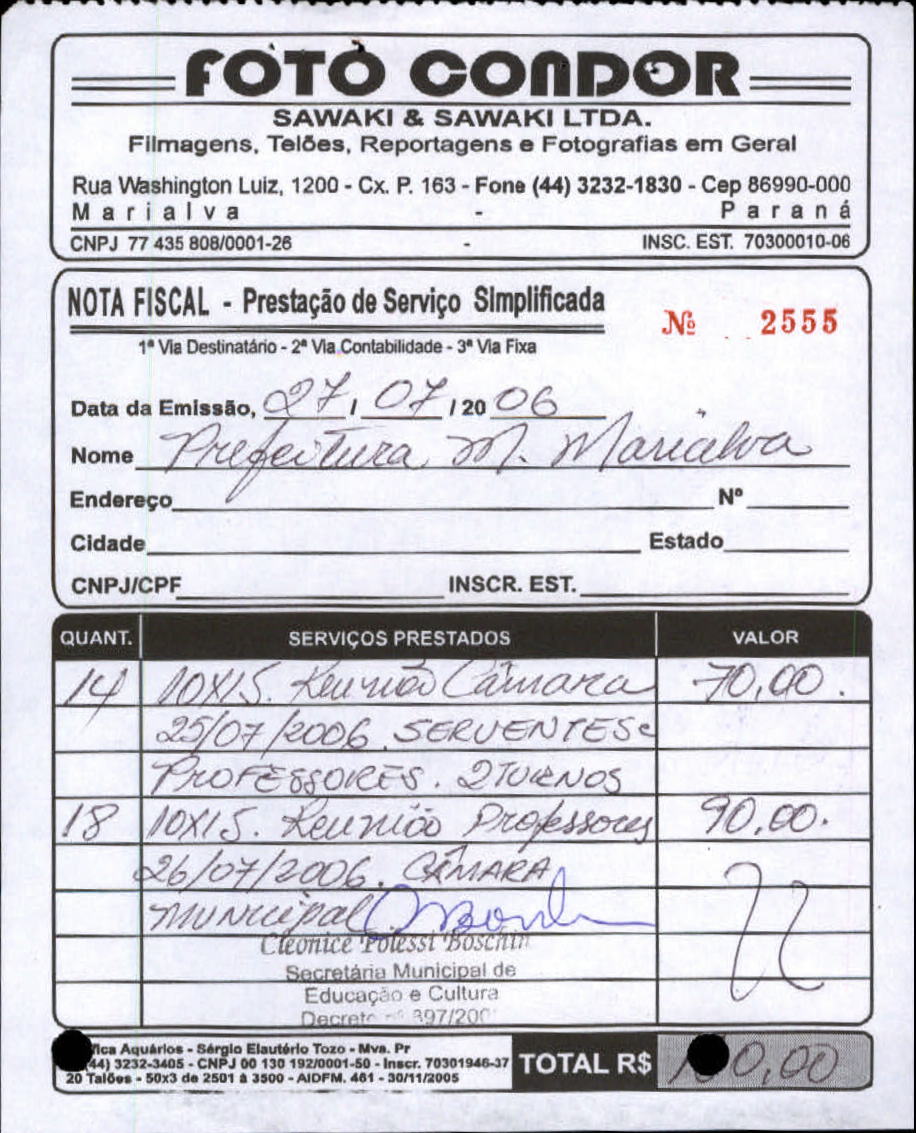 FOTO CONDOR
SAWAKI & SAWAKI LTDA.
Filmagens, Telões, Reportagens e Fotografias em Geral
Rua Washington Luiz, 1200 - Cx. P. 163 - Fone (44) 3232-1830 - Cep 86990-000
Marialva - Paraná
CNPJ 77 435 808/0001-26 - INSC. EST. 70300010-06
NOTA FISCAL - Prestação de Serviço Simplificada
Nº 2555
1ª Via Destinatário - 2ª Via Contabilidade - 3ª Via Fixa
Data da Emissão, 27 / 07 / 20 06
Nome Prefeitura M. Marialva
Endereço Nº
Cidade Estado
CNPJ/CPF INSCR. EST.
QUANT. SERVIÇOS PRESTADOS VALOR
14 10X15. Reunião Câmara 70,00.
25/07/2006. SERVENTES e
PROFESSORES. 2 TURNOS
18 10X15. Reunião Professores 90,00.
26/07/2006. CÂMARA
Municipal
Cleonice Polessi Boschin
Secretária Municipal de
Educação e Cultura
Decreto nº 897/200
Aquários - Sérgio Elautério Tozo - Mva. Pr
44) 3232-3405 - CNPJ 00 130 192/0001-50 - Inscr. 70301946-37
20 Talões - 50x3 de 2501 à 3500 - AIDFM. 461 - 30/11/2005
TOTAL R$ 0,00